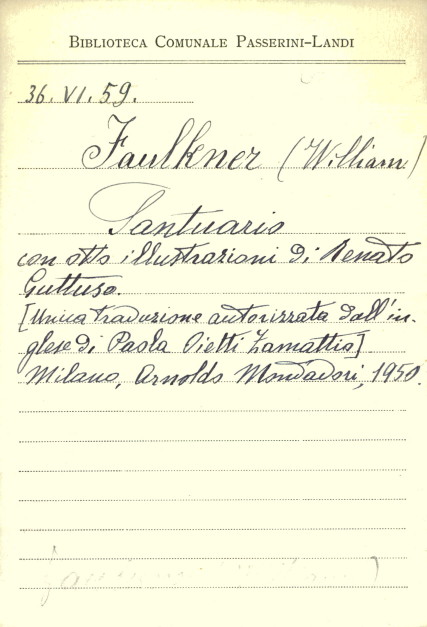 BIBLIOTECA COMUNALE PASSERINI-LANDI
36. VI. 59.
Faulkner (William)
Santuario
con otto illustrazioni di Renato
Guttuso.
[Unica traduzione autorizzata dall'in-
glese di Paola Ojetti Zamattio]
Milano, Arnoldo Mondadori, 1950.